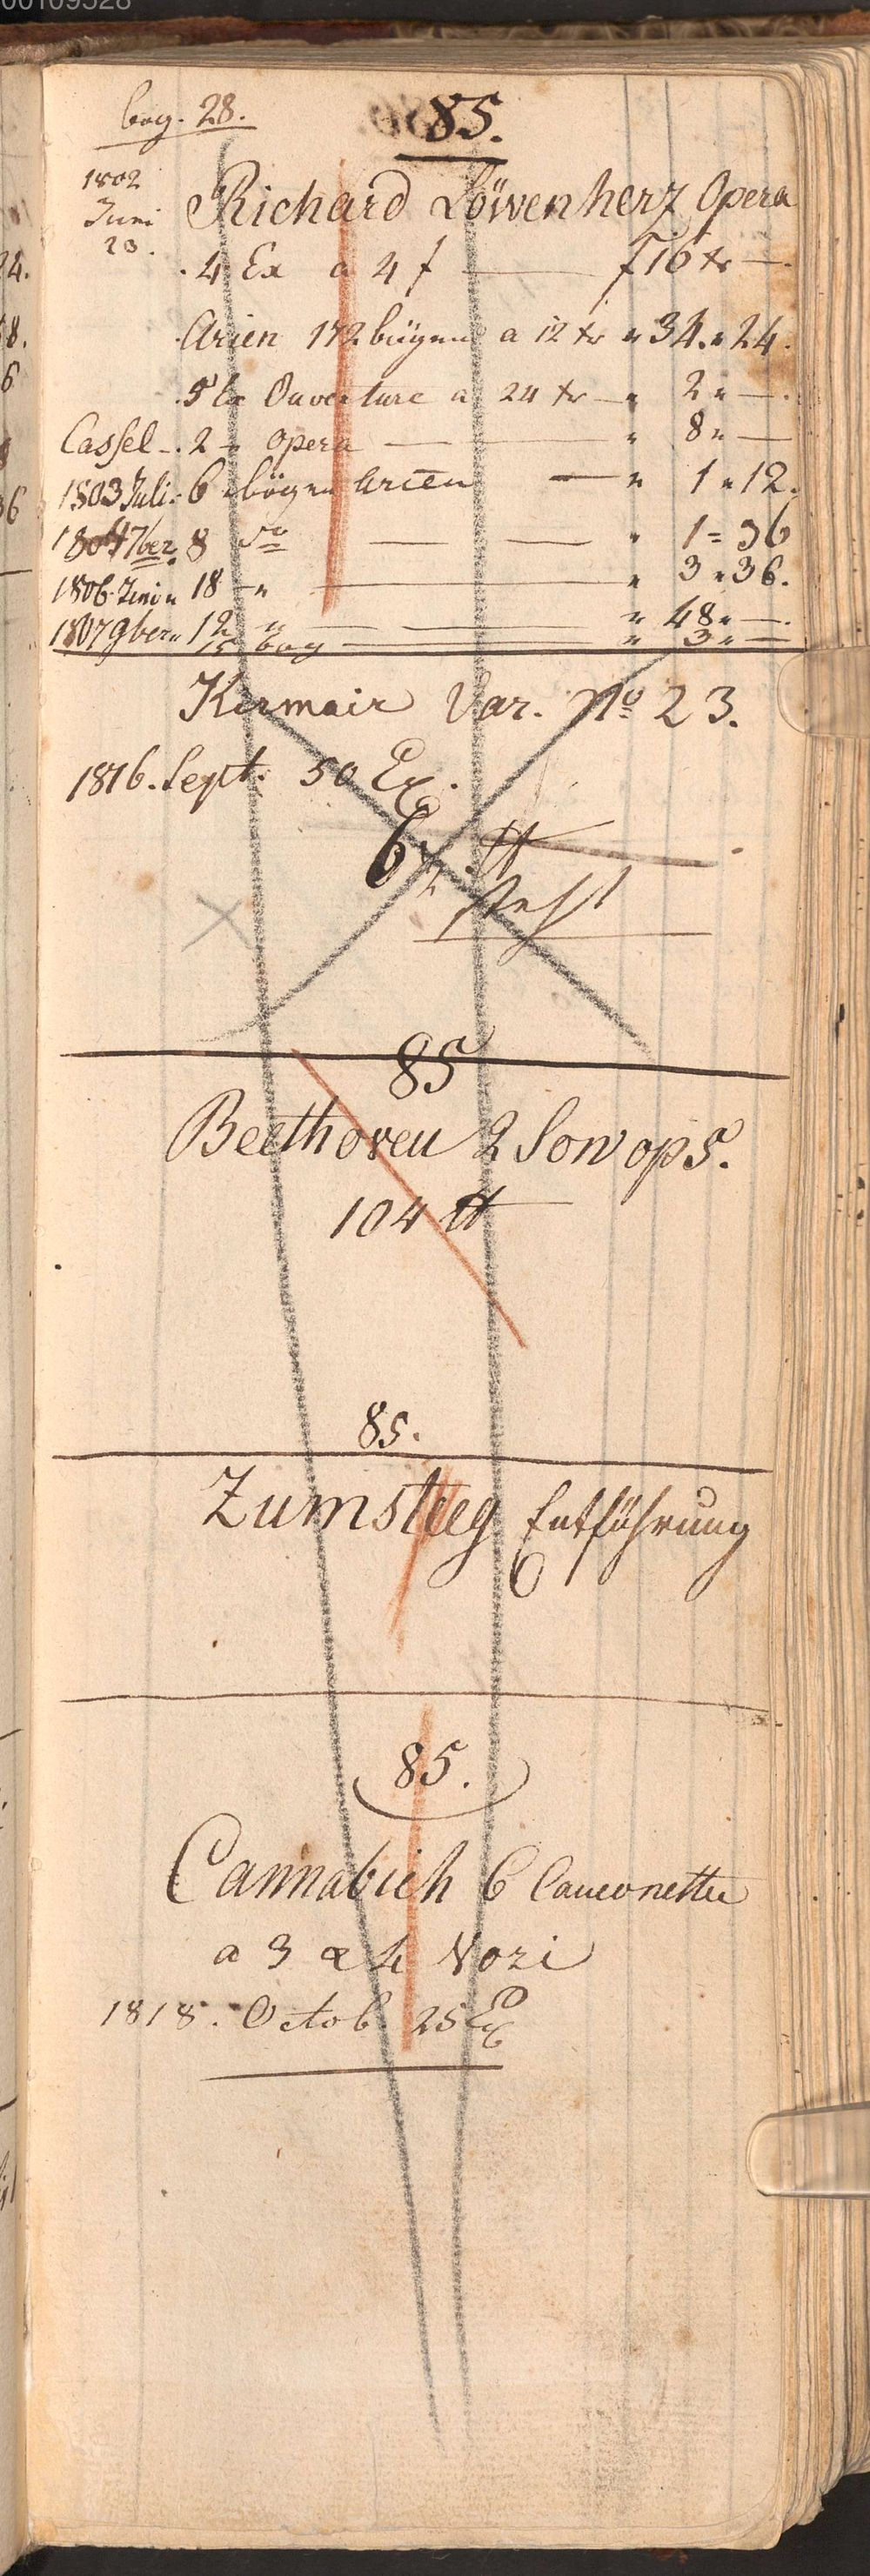 00109528
bog. 28.
85.
1802
Juni
23.
Richard Löwenherz Opera
4 Ex a 4 f — f 16 xr —
Arien 172 bögen a 12 xr " 34 " 24.
5 Ex Ouverture a 24 xr — " 2 " —.
Cassel — 2 " opera — " 8 " —
1803 Juli 6 bögen Arien — " 1 " 12.
1804 7ber 8 do — — " 1 = 36
1806 Juni " 18 — " — " 3 " 36.
1807 9ber " 12 " — " 48 " —.
15 bog — " 3 " —
Kirmair Var. No 23.
1816. Sept. 50 Ex.
6
85
Beethoven 2 Son op 5.
104
85.
Zumsteeg Entführung
85.
Cannabich 6 Canzonette
a 3 & 4 Vozi
1818. Octob. 25 Ex